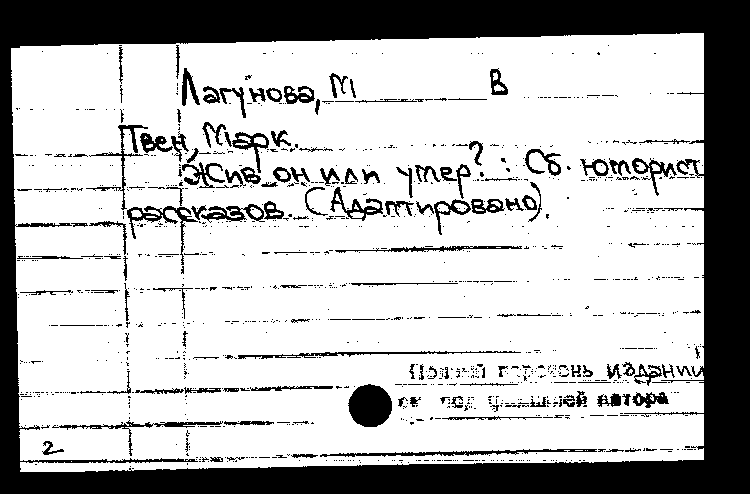 Лагунова, М В
Твен, Марк.
Жив он или умер? : Сб. юморист
рассказов. (Адаптировано).
Полный перечень издании
см под фамилией автора
2